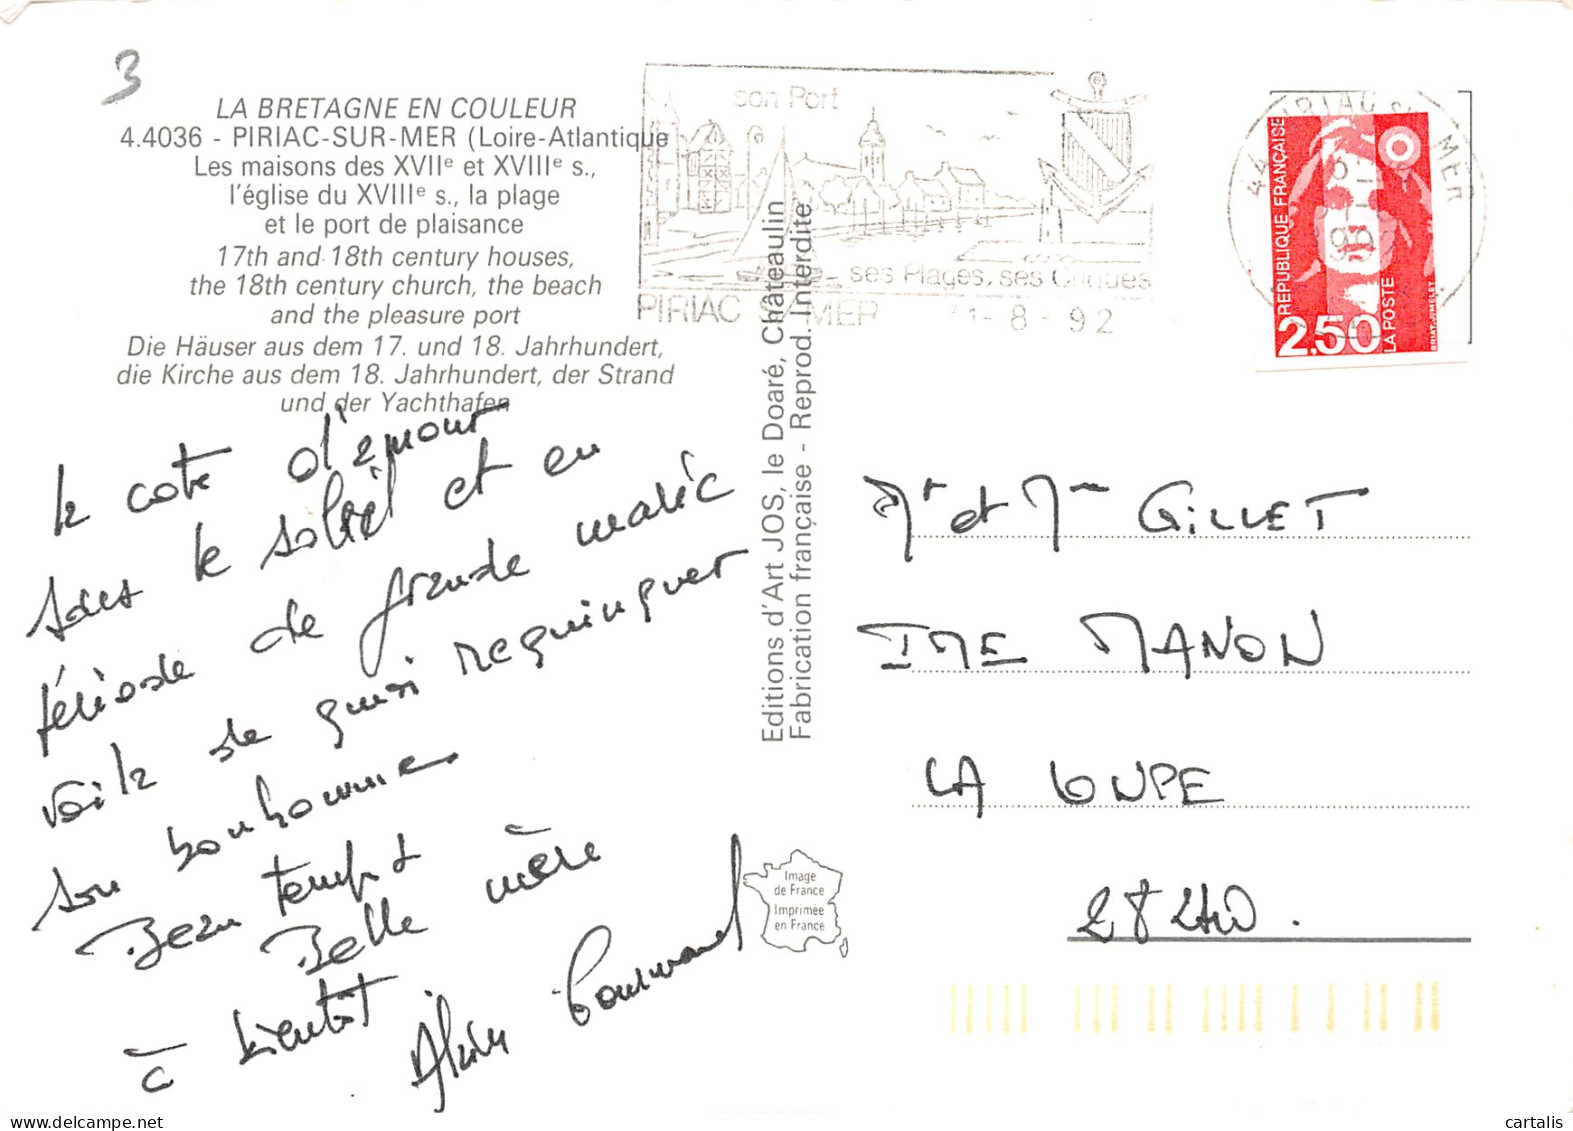 3
LA BRETAGNE EN COULEUR
4.4036 - PIRIAC-SUR-MER (Loire-Atlantique
Les maisons des XVIIe et XVIIIe s.,
l'église du XVIIIe s., la plage
et le port de plaisance
17th and 18th century houses,
the 18th century church, the beach
and the pleasure port
Die Häuser aus dem 17. und 18. Jahrhundert,
die Kirche aus dem 18. Jahrhundert, der Strand
und der Yachthafen
la cote d'amour
sous le soleil et en
période de grande marée
voilà de quoi requinquer
son bonhomme
Beau temps
Belle mère
à bientôt
Alain
Editions d'Art JOS, le Doaré, Châteaulin
Fabrication française - Reprod. Interdite
son Port
ses Plages, ses Criques
PIRIAC S/ MER 1-8-92
44 PIRIAC S/ MER
REPUBLIQUE FRANÇAISE
2,50
LA POSTE
BRIAT-JUMELET
Mr et Mme GILLET
IME MANON
LA LOUPE
28240.
Image
de France
Imprimée
en France
delcampe.net
cartalis